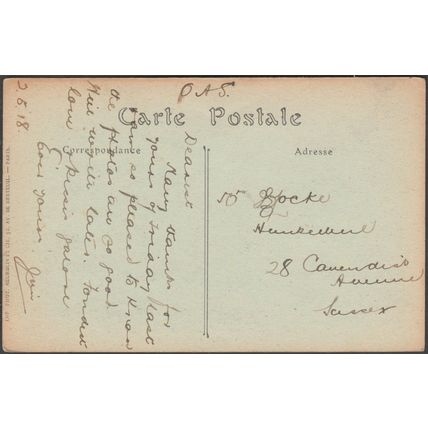 O.A.S.
Carte Postale
Correspondance
Adresse
2.5.18.
Dearest
Many thanks for
yours of Friday last
am so pleased to know
the photos are so good.
Will write later. Fondest
love kisses galore
Ever yours Jim
28 Cavendish
Avenue
Sussex